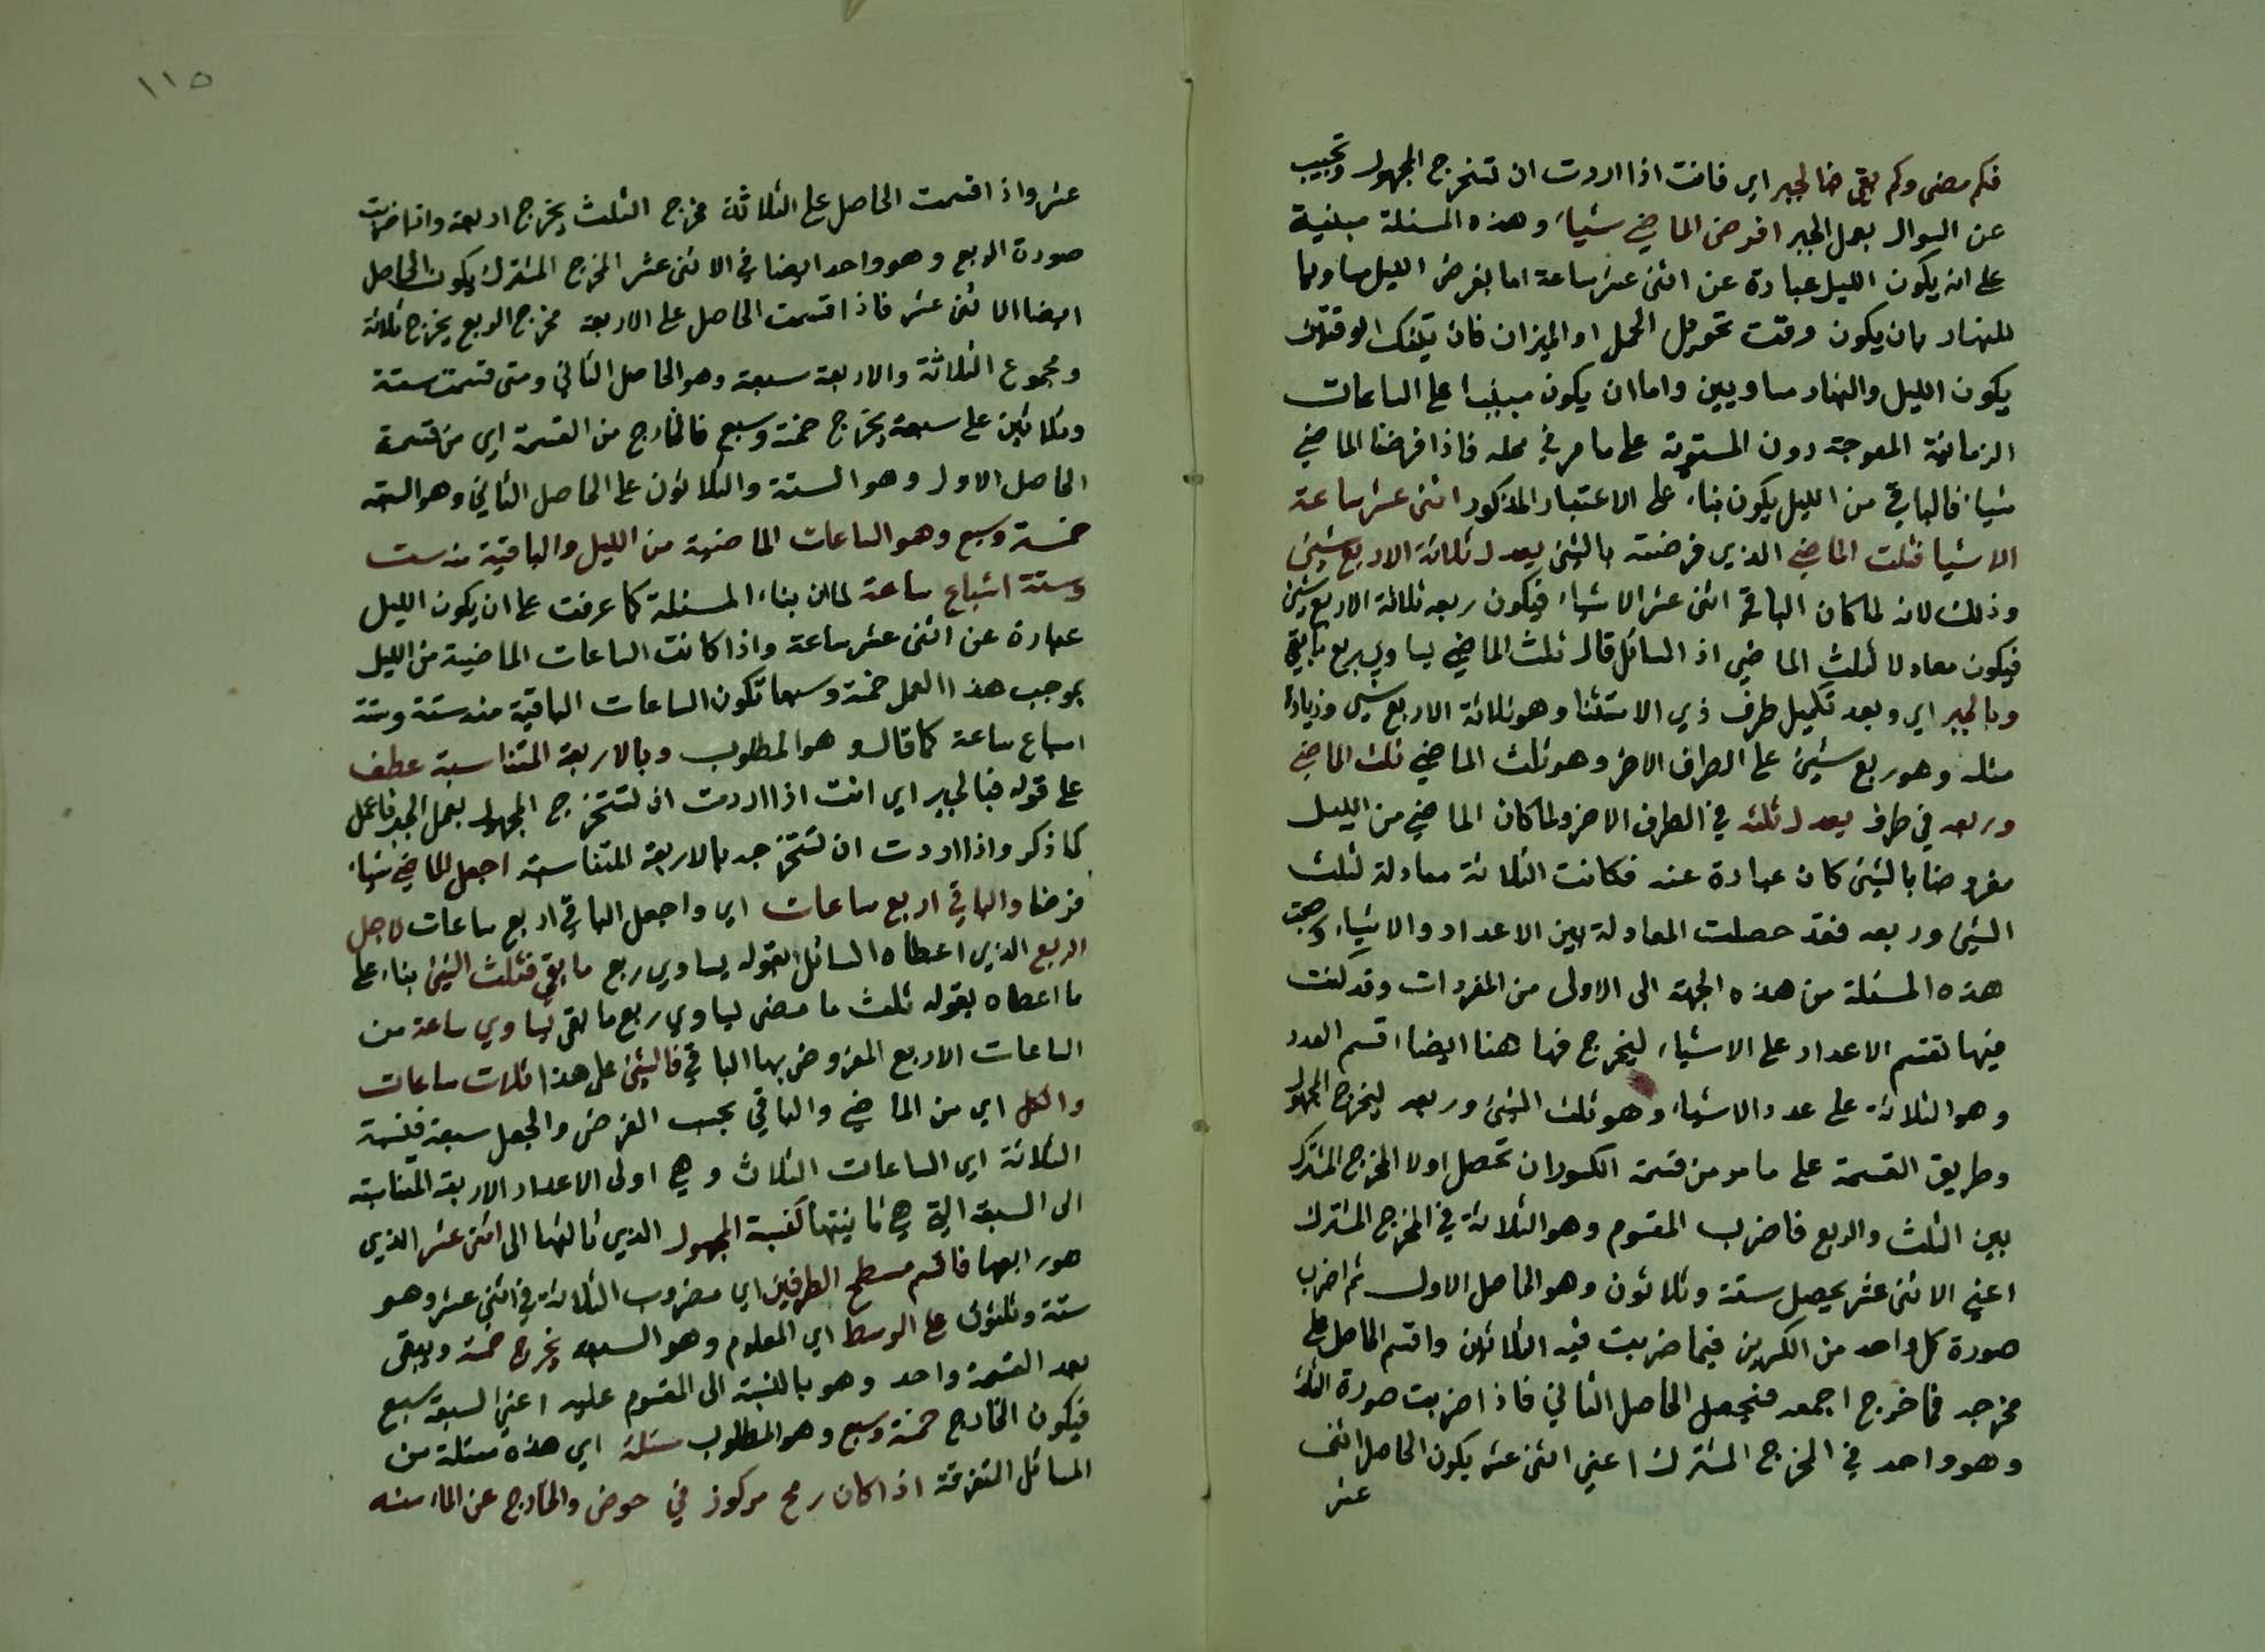 فكم مضى وكم بقى فبالجبر اي فانت اذا اردت ان تستخرج المجهول وتجيب
عن السوال بعمل الجبر افرض الماضي شياء وهذه المسئلة مبنية
على ان يكون الليل عبارة عن اثنى عشر ساعة اما بفرض الليل مساويا
للنهار بان يكون وقت تحويل الحمل او الميزان فان تينك الوقتين
يكون الليل والنهار مساويين واما ان يكون مبنيا على الساعات
الزمانية المعوجة دون المستوية على ما مر في محله فاذا فرضنا الماضي
شياء فالباقي من الليل يكون بناء على الاعتبار المذكور اثنى عشر ساعة
الا شيا فثلث الماضي الذي فرضته بالشئ يعدل ثلاثة الا ربع شئ
وذلك لانه لما كان الباقي اثنى عشر الا شياء فيكون ربعه ثلاثة الا ربع شئ
فيكون معادلا لثلث الماضي اذ السائل قال ثلث الماضي يساوي ربع ما بقي
وبالجبر اي وبعد تكميل طرف ذي الاستثنا وهو ثلاثة الا ربع شئ وزيادة
مثله وهو ربع شئ على الطرف الاخر وهو ثلث الماضي ثلث الماضي
وربعه في طرف يعدل ثلثه في الطرف الاخر ولما كان الماضي من الليل
مفروضا بالشئ كان عبارة عنه فكانت الثلاثة معادلة لثلث
الشئ وربعه فقد حصلت المعادلة بين الاعداد والاشياء ورجعت
هذه المسئلة من هذه الجهة الى الاولى من المفردات وقد كنت
فيها تقسم الاعداد على الاشياء ليخرج فها هنا ايضا اقسم العدد
وهو الثلاثة على عدد الاشياء وهو ثلث الشئ وربعه ليخرج المجهول
وطريق القسمة على ما مر من قسمة الكسور ان تحصل اولا المخرج المشترك
بين الثلث والربع فاضرب المقسوم وهو الثلاثة في المخرج المشترك
اعني الاثنى عشر يحصل ستة وثلاثون وهو الحاصل الاول ثم اضرب
صورة كل واحد من الكسرين فيما ضربت فيه الثلاثة واقسم الحاصل على
مخرجه فما خرج اجمعه فيحصل الحاصل الثاني فاذا ضربت صورة الثلث
وهو واحد في المخرج المشترك اعني اثنى عشر يكون الحاصل اثنى
عشر
١١٥
عشر واذا قسمت الحاصل على الثلاثة مخرج الثلث يخرج اربعة واذا ضربت
صورة الربع وهو واحد ايضا في الاثنى عشر المخرج المشترك يكون الحاصل
ايضا الاثنى عشر فاذا قسمت الحاصل على الاربعة مخرج الربع يخرج ثلاثة
ومجموع الثلاثة والاربعة سبعة وهو الحاصل الثاني ومتى قسمت ستة
وثلاثين على سبعة يخرج خمسة وسبع فالخارج من القسمة اي من قسمة
الحاصل الاول وهو الستة والثلاثون على الحاصل الثاني وهو السبعة
خمسة وسبع وهو الساعات الماضية من الليل والباقية منه ست
وستة اسباع ساعة لما ان بناء المسئلة كما عرفت على ان يكون الليل
عبارة عن اثنى عشر ساعة واذا كانت الساعات الماضية من الليل
بموجب هذا العمل خمسة وسبعا تكون الساعات الباقية منه ستة وستة
اسباع ساعة كما قال وهو المطلوب وبالاربعة المتناسبة عطف
على قوله فبالجبر اي انت اذا اردت ان تستخرج المجهول بعمل الجبر فاعمل
كما ذكر واذا اردت ان تستخرجه بالاربعة المتناسبة اجعل الماضي شياء
فرضا والباقي اربع ساعات اي واجعل الباقي اربع ساعات لاجل
الربع الذي اعطاه السائل بقوله يساوي ربع ما بقي فثلث الشئ بناء على
ما اعطاه بقوله ثلث ما مضى يساوي ربع ما بقى يساوي ساعة من
الساعات الاربع المفروض بها الباقي فالشئ على هذا ثلاث ساعات
والكل اي من الماضي والباقي بحسب الفرض والجعل سبعة فنسبة
الثلاثة اي الساعات الثلاث وهي اولى الاعداد الاربعة المتناسبة
الى السبعة التي هي ثانيتها كنسبة المجهول الذي ثالثها الى اثنى عشر الذي
هو رابعها فاقسم مسطح الطرفين اي مضروب الثلاثة في اثني عشر وهو
ستة وثلثون على الوسط اي المعلوم وهو السبعة يخرج خمسة ويبقى
بعد القسمة واحد وهو بالنسبة الى المقسوم عليه اعني السبعة سبع
فيكون الخارج خمسة وسبع وهو المطلوب مسئلة اي هذه مسئلة من
المسائل المتفرقة اذا كان رمح مركوز في حوض والخارج عن الماء منه